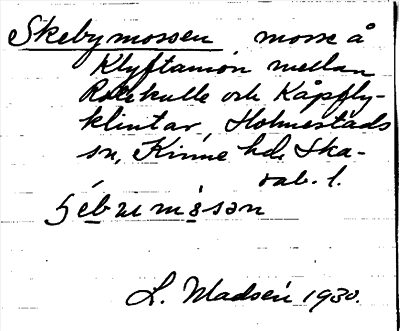 Skebymossen, mosse å
Klyftamon mellan
Rolekulle och Kåpfly-
klintar, Holmestads
sn, Kinne hd, Ska-
rab. l.
L. Madsén 1930.